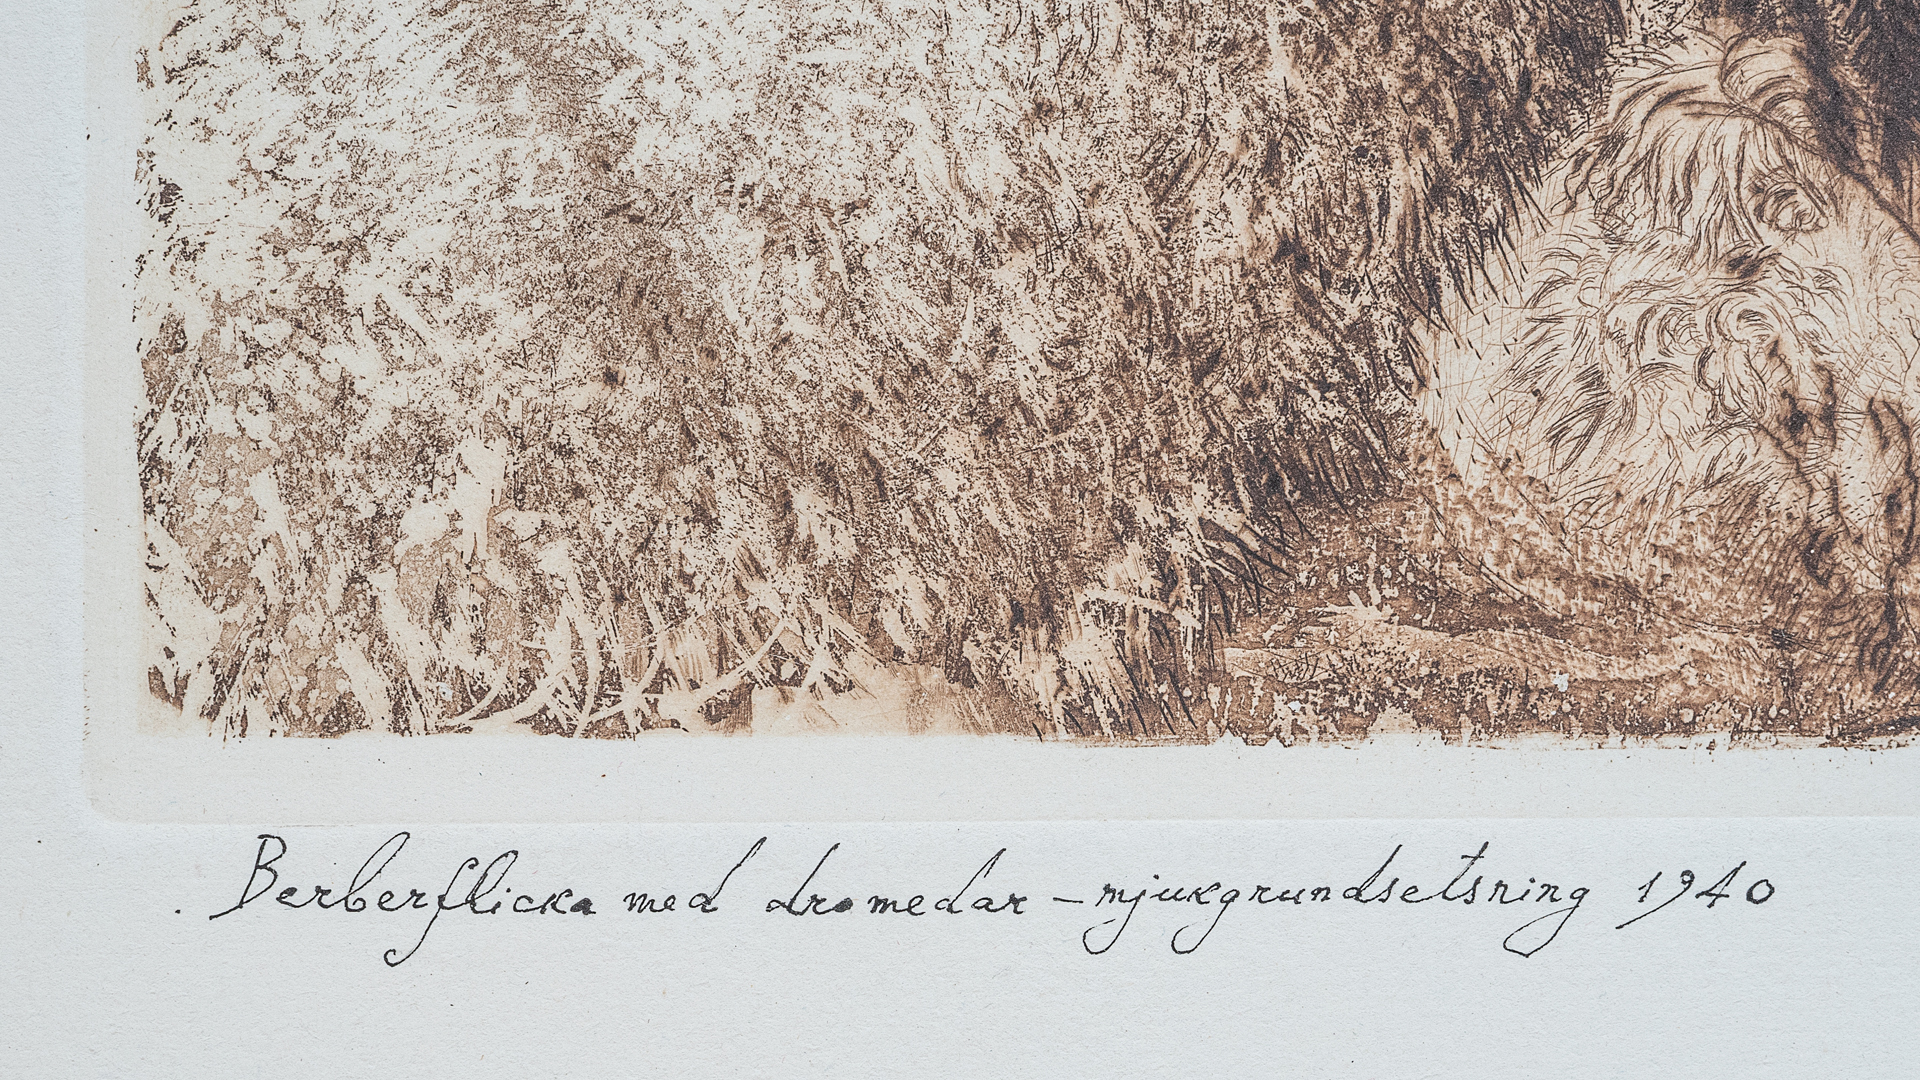 Berberflicka med dromedar - mjukgrundsetsning 1940